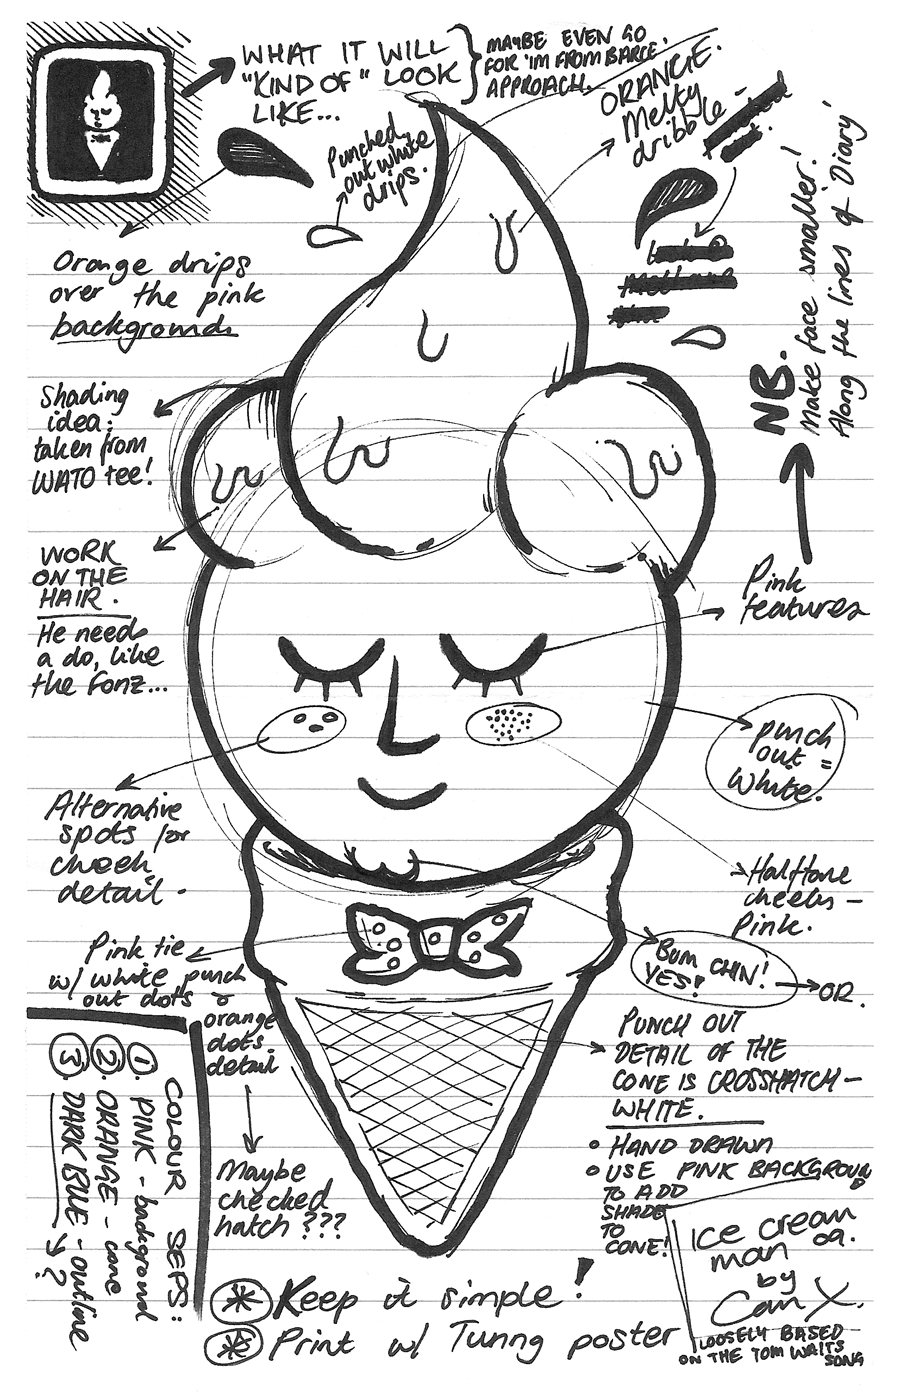 WHAT IT WILL
"KIND OF" LOOK
LIKE...
MAYBE EVEN GO
FOR 'IM FROM BARCE.'
APPROACH.
ORANGE.
Melty
dribble -
Punched
out white
drips.
Orange drips
over the pink
background.
Shading
idea:
taken from
WATO tee!
WORK
ON THE
HAIR.
He needs
a do, like
the Fonz...
NB.
Make face smaller!
Along the lines of 'Diary'
Pink
features
punch
out =
White.
Alternative
spots for
cheek
detail.
Halftone
cheeks -
Pink.
Pink tie
w/ white punch
out dots &
orange
dots.
detail
Maybe
checked
hatch ???
BUM CHIN!
YES!
OR.
PUNCH OUT
DETAIL OF THE
CONE IS CROSSHATCH -
WHITE.
• HAND DRAWN
• USE PINK BACKGROUND
TO ADD
SHADE
TO
CONE!
COLOUR SEPS:
1. PINK - background
2. ORANGE - cone
3. DARK BLUE - outline
?
Keep it simple!
Print w/ Tunng poster
Ice cream
man 09.
by
LOOSELY BASED
ON THE TOM WAITS
SONG